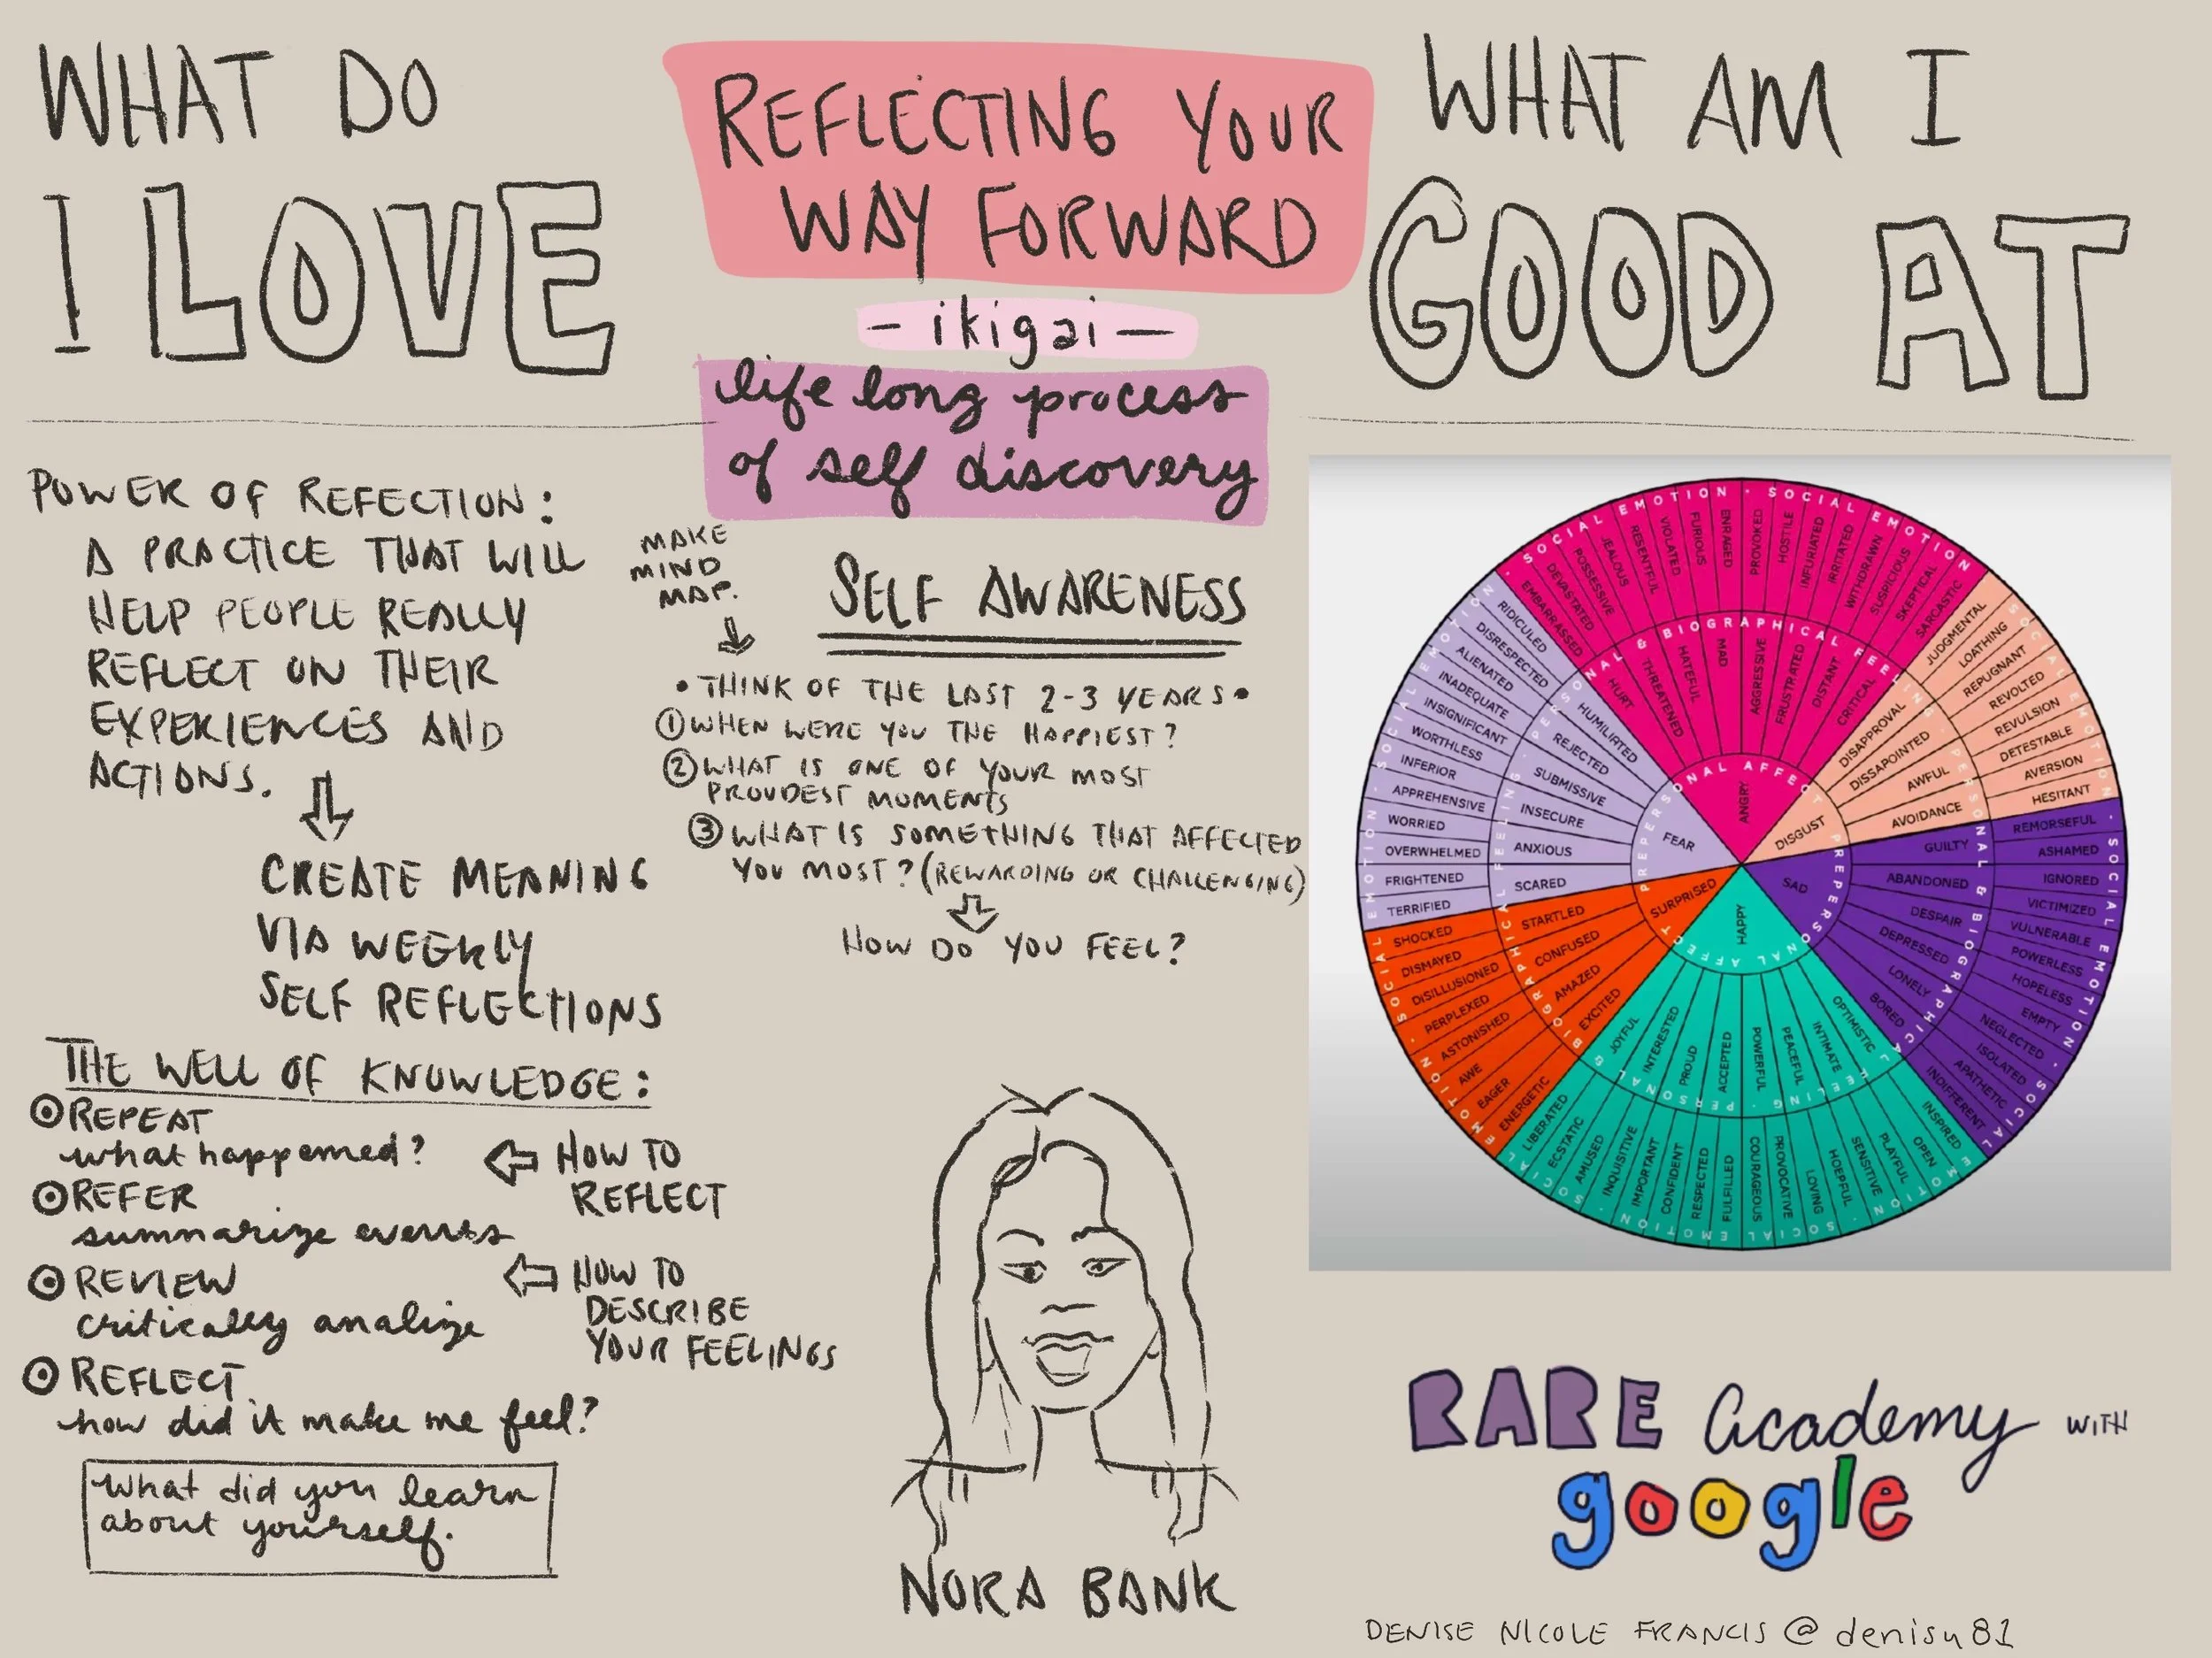 WHAT DO
I LOVE
REFLECTING YOUR
WAY FORWARD
- ikigai -
life long process
of self discovery
WHAT AM I
GOOD AT
POWER OF REFECTION:
A PRACTICE THAT WILL
HELP PEOPLE REALLY
REFLECT ON THEIR
EXPERIENCES AND
ACTIONS.
CREATE MEANING
VIA WEEKLY
SELF REFLECTIONS
THE WELL OF KNOWLEDGE:
REPEAT
what happened?
REFER
summarize events
REVIEW
critically analize
REFLECT
how did it make me feel?
HOW TO
REFLECT
HOW TO
DESCRIBE
YOUR FEELINGS
What did you learn
about yourself.
MAKE
MIND
MAP.
SELF AWARENESS
• THINK OF THE LAST 2-3 YEARS •
① WHEN WERE YOU THE HAPPIEST?
② WHAT IS ONE OF YOUR MOST
PROUDEST MOMENTS
③ WHAT IS SOMETHING THAT AFFECTED
YOU MOST? (REWARDING OR CHALLENGING)
HOW DO YOU FEEL?
NORA BANK
SOCIAL EMOTION · SOCIAL EMOTION
EMBARRASSED
DEVASTATED
POSSESSIVE
JEALOUS
RESENTFUL
VIOLATED
FURIOUS
ENRAGED
PROVOKED
HOSTILE
INFURIATED
IRRITATED
WITHDRAWN
SUSPICIOUS
SKEPTICAL
SARCASTIC
HURT
THREATENED
HATEFUL
MAD
AGGRESSIVE
FRUSTRATED
DISTANT
CRITICAL
ANGRY
JUDGMENTAL
LOATHING
REPUGNANT
REVOLTED
REVULSION
DETESTABLE
AVERSION
HESITANT
DISAPPROVAL
DISSAPOINTED
AWFUL
AVOIDANCE
DISGUST
REMORSEFUL
ASHAMED
IGNORED
VICTIMIZED
VULNERABLE
POWERLESS
HOPELESS
EMPTY
NEGLECTED
ISOLATED
APATHETIC
INDIFFERENT
GUILTY
ABANDONED
DESPAIR
DEPRESSED
LONELY
BORED
SAD
INSPIRED
OPEN
PLAYFUL
SENSITIVE
HOEPFUL
LOVING
PROVOCATIVE
COURAGEOUS
FULFILLED
RESPECTED
CONFIDENT
IMPORTANT
INQUISITIVE
AMUSED
ECSTATIC
LIBERATED
OPTIMISTIC
INTIMATE
PEACEFUL
POWERFUL
ACCEPTED
PROUD
INTERESTED
JOYFUL
HAPPY
ENERGETIC
EAGER
AWE
ASTONISHED
PERPLEXED
DISILLUSIONED
DISMAYED
SHOCKED
EXCITED
AMAZED
CONFUSED
STARTLED
SURPRISED
TERRIFIED
FRIGHTENED
OVERWHELMED
WORRIED
APPREHENSIVE
INFERIOR
WORTHLESS
INSIGNIFICANT
INADEQUATE
ALIENATED
DISRESPECTED
RIDICULED
SCARED
ANXIOUS
INSECURE
SUBMISSIVE
REJECTED
HUMILIRTED
FEAR
PERSONAL & BIOGRAPHICAL FEELING
PREPERSONAL AFFECT
RARE academy WITH
google
DENISE NICOLE FRANCIS @denisu81